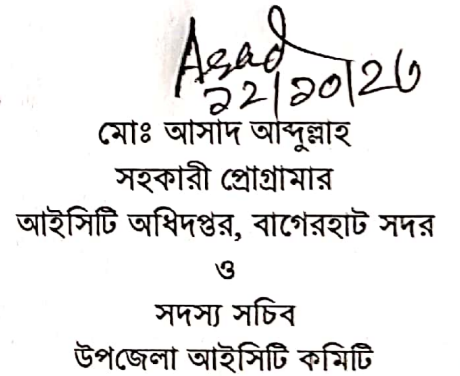 Asad
১২|১০|২৩
মোঃ আসাদ আব্দুল্লাহ
সহকারী প্রোগ্রামার
আইসিটি অধিদপ্তর, বাগেরহাট সদর
ও
সদস্য সচিব
উপজেলা আইসিটি কমিটি